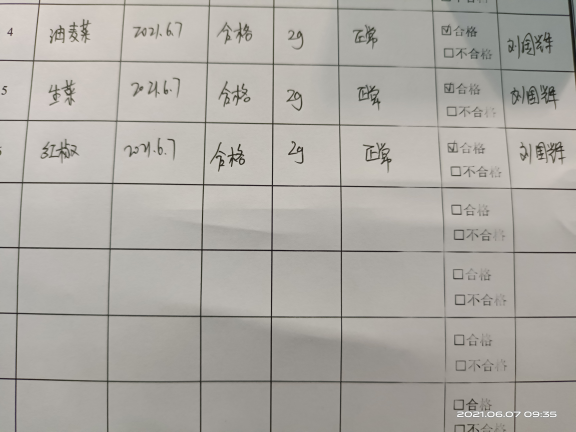 4 油麦菜 2021.6.7 合格 2g 正常 ☑合格 刘国辉
☐不合格
5 生菜 2021.6.7 合格 2g 正常 ☑合格 刘国辉
☐不合格
红椒 2021.6.7 合格 2g 正常 ☑合格 刘国辉
☐不合格
☐合格
☐不合格
☐合格
☐不合格
☐合格
☐不合格
☐合格
☐不合格
2021.06.07 09:35